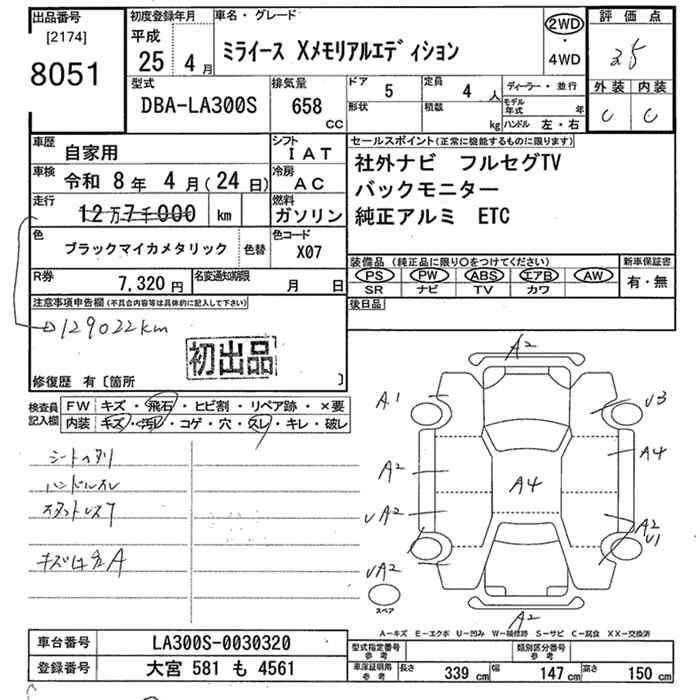 出品番号 初度登録年月 車名・グレード 評価点
[2174] 平成 2WD
8051 25 4月 ミライース Xメモリアルエディション ・ 4WD
型式 排気量 ドア 5 定員 4人 ディーラー・並行 外装 内装
DBA-LA300S 658 CC 形状 積載 kg モデル年式 年 C C
ハンドル 左・右
車歴 自家用 シフト IAT セールスポイント(正常に機能するものに限ります)
車検 令和 8年 4月(24日) 冷房 AC 社外ナビ フルセグTV
走行 12万7千000 km 燃料 ガソリン バックモニター
純正アルミ ETC
色 ブラックマイカメタリック 色替 色コード X07
装備品(純正品に限り○をつけてください) 新車保証書
PS PW ABS エアB AW 有・無
SR ナビ TV カワ
R券 7,320円 名変通知期限 月 日
後日品
注意事項申告欄(不具合内容等は具体的に記入して下さい)
129022km
初出品
修復歴 有〔箇所 〕
検査員記入欄 FW キズ・飛石・ヒビ割・リペア跡・×要
内装 キズ・汚レ・コゲ・穴・スレ・キレ・破レ
A2
A1 U3
A2 A4 A4
UA2 A2
U1
UA2
スペア
A2
シートヘタリ
ハンドルスレ
A-キズ E-エクボ U-凹み W-補修跡 S-サビ C-腐食 XX-交換済
車台番号 LA300S-0030320 型式指定番号 参考 類別区分番号 参考
登録番号 大宮 581 も 4561 車庫証明用 参考 長さ 339 cm 幅 147 cm 高さ 150 cm